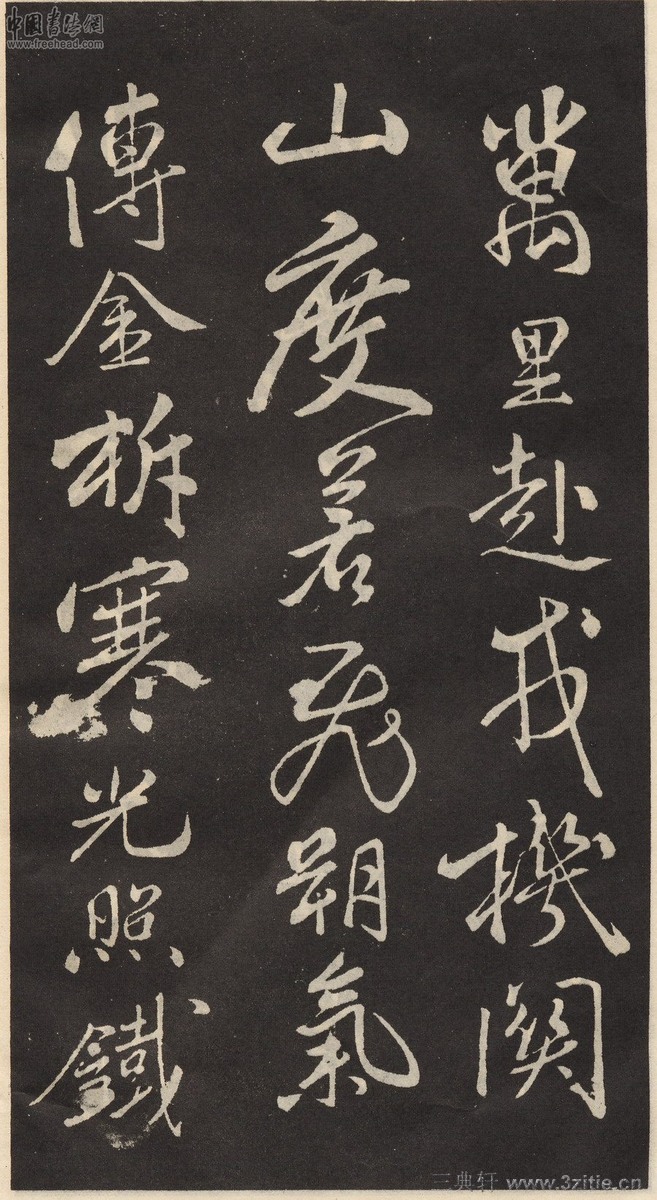 萬里赴戎機關
山度若飛朔氣
傳金柝寒光照鐵
中國書法網
www.freehead.com
三典轩 www.3zitie.cn